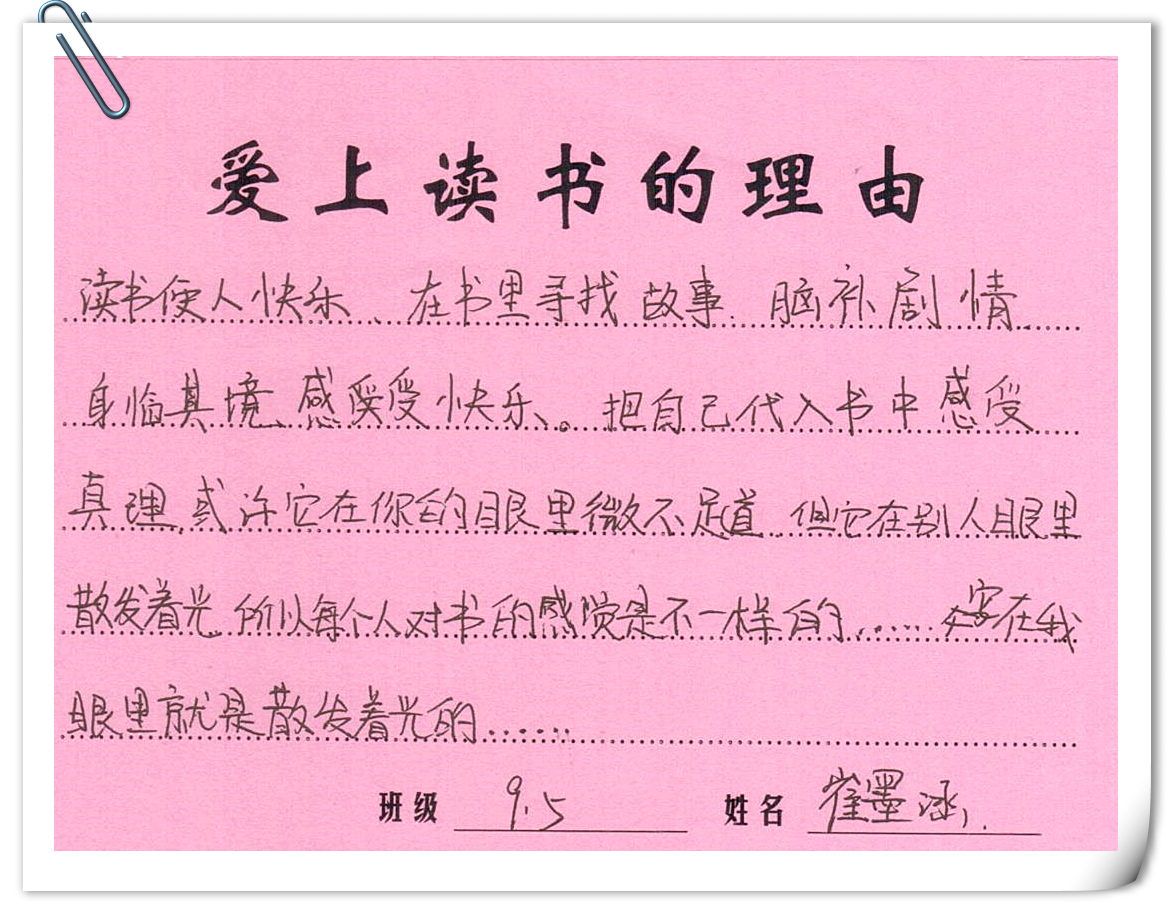 爱上读书的理由
读书使人快乐、在书里寻找故事.脑补剧情.
身临其境、感受快乐、。把自己代入书中感受
真理.或许它在你的眼里微不足道.但它在别人眼里
散发着光.所以每个人对书的感觉是不一样的……在我
眼里就是散发着光的……
班级 9.5 姓名 崔墨涵.